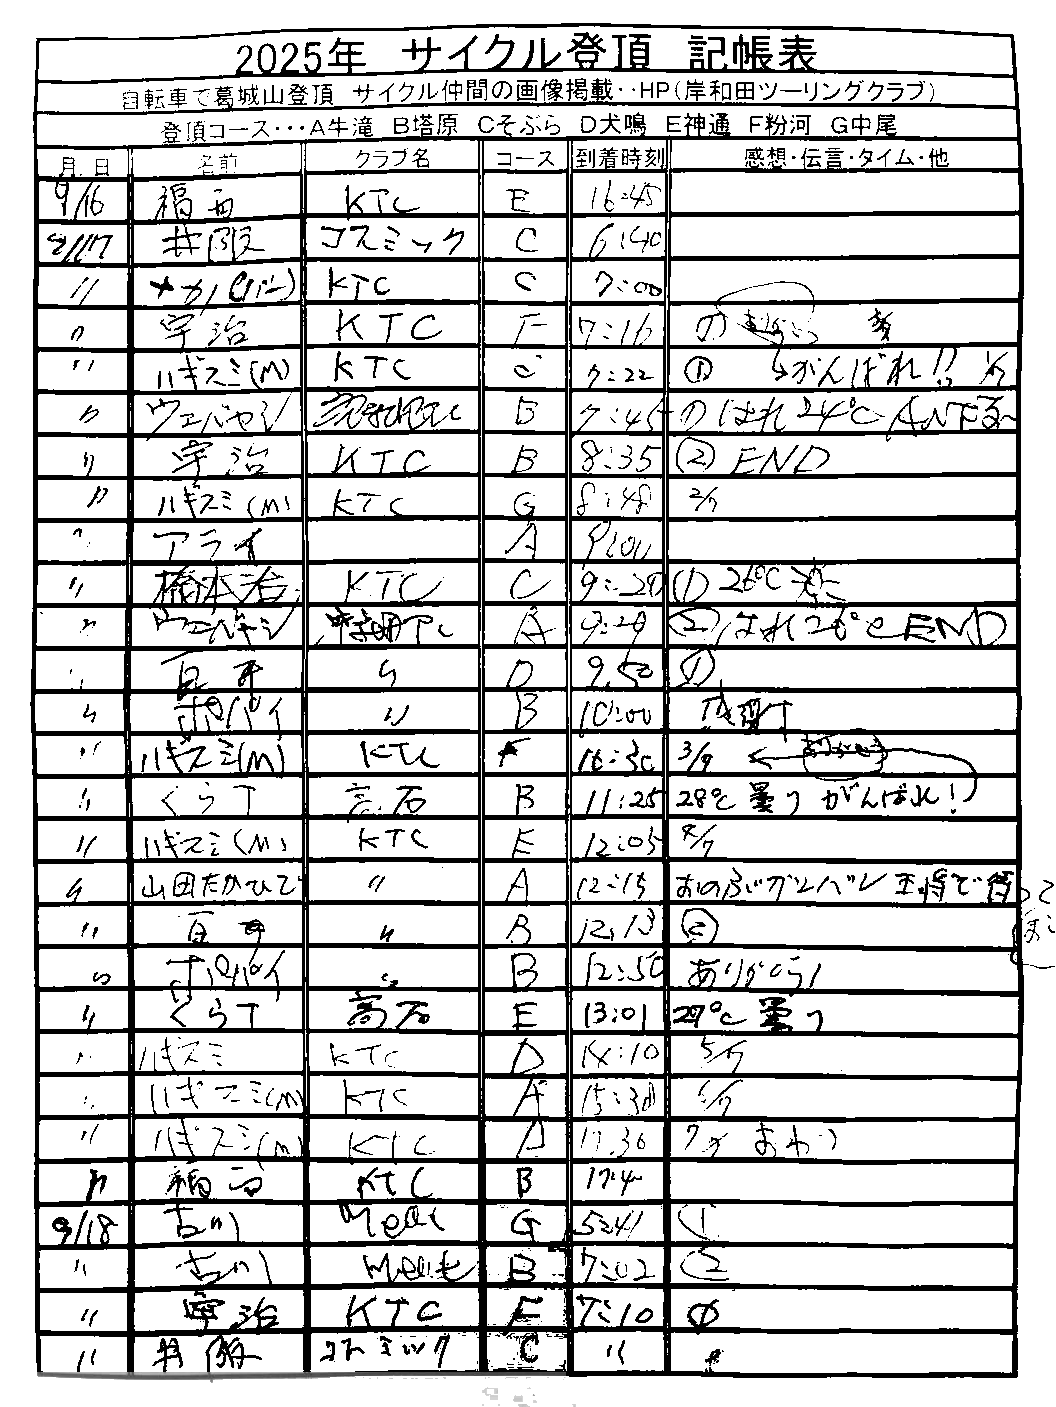 2025年 サイクル登頂 記帳表
自転車で葛城山登頂 サイクル仲間の画像掲載‥HP(岸和田ツーリングクラブ)
登頂コース・・・A牛滝 B塔原 Cそぶら D犬鳴 E神通 F粉河 G中尾
月.日 名前 クラブ名 コース 到着時刻 感想・伝言・タイム・他
9/16 福西 KTC E 16:45
9/17 井阪 コスミック C 6:40
〃 ナカノ KTC C 7:00
〃 宇治 KTC F 7:16 ①
〃 ハギスミ(M) KTC C 7:22 ① がんばれ!! 1/7
〃 ウエバヤシ B 7:45 ① はれ 24℃
〃 宇治 KTC B 8:35 ② END
〃 ハギスミ(M) KTC G 8:48 2/7
〃 アライ A 9:00
〃 橋本治 KTC C 9:20 ① 26℃
〃 ウエバヤシ A 9:28 ② はれ 26℃ END
〃 百井 〃 D 9.50 ①
〃 ポパイ 〃 B 10:00 感謝
〃 ハギスミ(M) KTC F 10:30 3/7
〃 くらT 高石 B 11:25 28℃ 曇り がんばれ!
〃 ハギスミ(M) KTC E 12:05 4/7
〃 山田たかひで 〃 A 12:15 王将で待って
〃 百井 〃 B 12.13 ②
〃 ポパイ 〃 B 12:50 ありがとう!
〃 くらT 高石 E 13:01 29℃ 曇り
〃 ハギスミ KTC D 14:10 5/7
〃 ハギスミ(M) KTC A 15:38 6/7
〃 ハギスミ(M) KTC A 17.36 7/7 おわり
〃 福西 KTC B 17:4
9/18 古川 G 5:41 ①
〃 古川 B 7:02 ②
〃 宇治 KTC F 7:10 ①
〃 井阪 コスミック C 〃